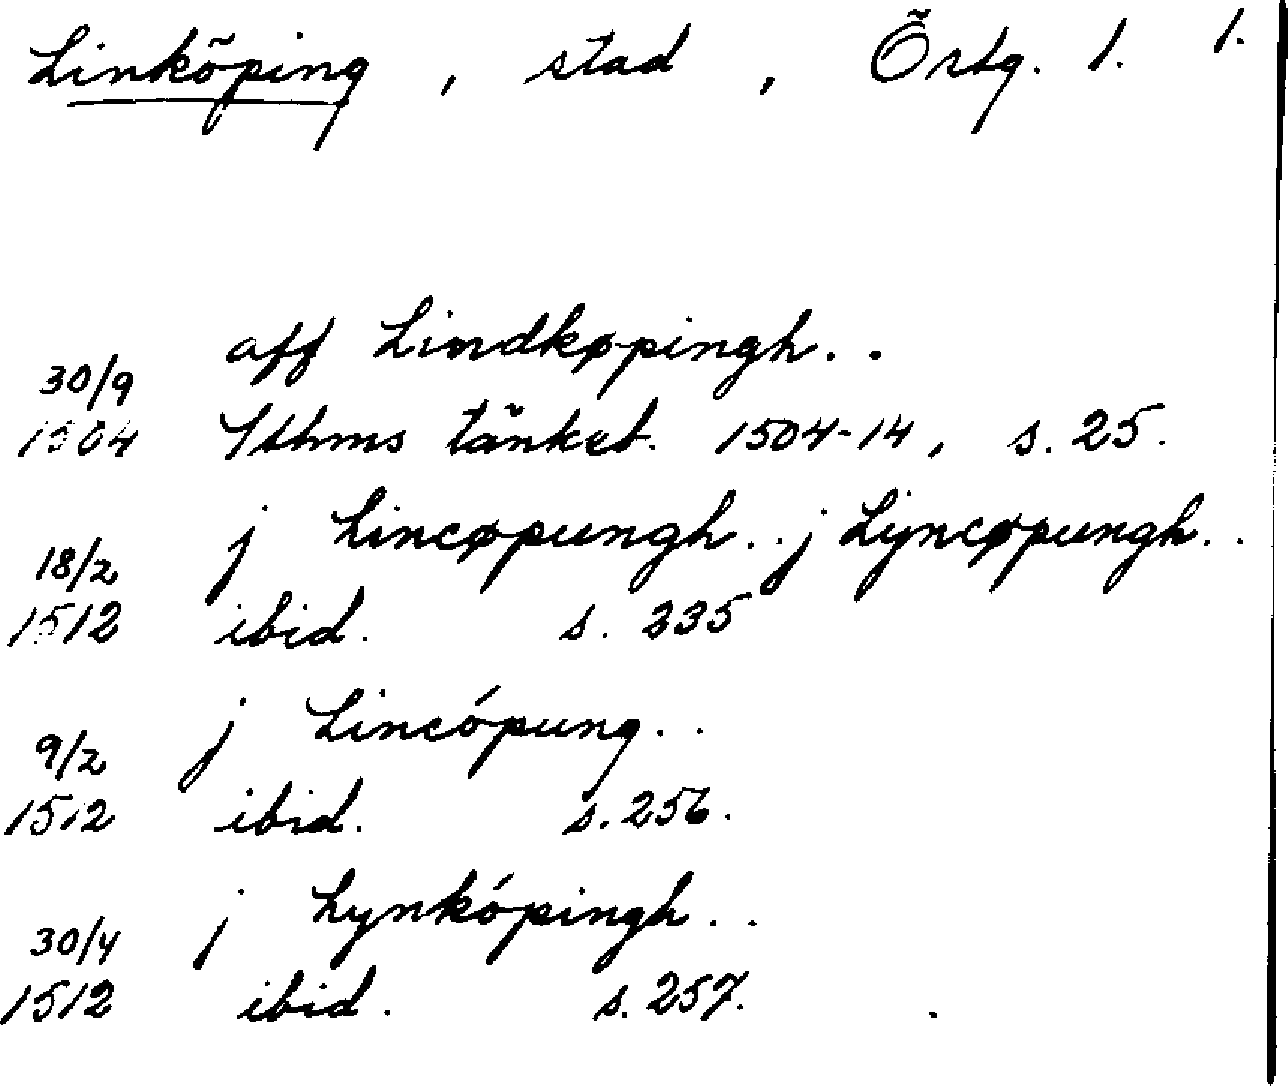 Linköping, stad, Östg. 1. 1.
aff Lindkøpingh..
30/9
1504 Sthms tänkeb. 1504-14, s. 25.
j Lincøpungh.. j Lyncøpungh..
18/2
1512 ibid. s. 235
j Lincópung..
9/2
1512 ibid. s. 256.
j Lynkópingh..
30/4
1512 ibid. s. 257.